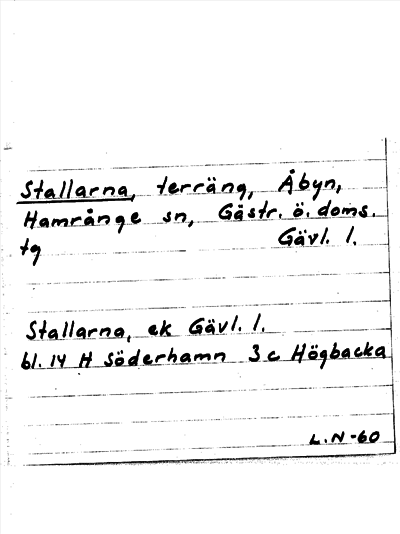 Stallarna, terräng, Åbyn,
Hamrånge sn, Gästr. ö. doms.
tg Gävl. l.
Stallarna, ek Gävl. l.
bl. 14 H Söderhamn 3 c Högbacka
L. N -60